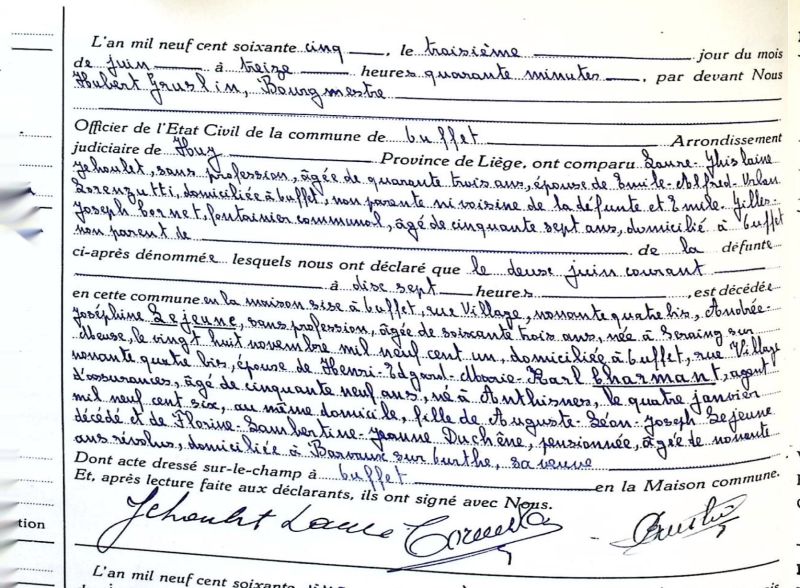 L'an mil neuf cent soixante cinq, le troisième jour du mois
de juin à treize heures quarante minutes, par devant Nous
Hubert Gruslin, Bourgmestre
Officier de l'Etat Civil de la commune de Ouffet Arrondissement
judiciaire de Huy Province de Liège, ont comparu Laure-Ghislaine
Jehoulet, sans profession, âgée de quarante trois ans, épouse de Emile-Alfred-Urban
Lorenzutti, domiciliée à Ouffet, non parente ni voisine de la défunte et Emile-Gilles-
Joseph Cornet, fontainier communal, âgé de cinquante sept ans, domicilié à Ouffet
non parent de de la défunte
ci-après dénommée lesquels nous ont déclaré que le deuse juin courant
à disc sept heures, est décédée
en cette commune en la maison sise à Ouffet, rue Village, nonante quatre bis, Andrée-
Joséphine Lejeune, sans profession, âgée de soixante trois ans, née à Seraing sur
Meuse, le vingt huit novembre mil neuf cent un, domiciliée à Ouffet, rue Village
nonante quatre bis, épouse de Henri-Edgard-Marie-Karl Charmant, agent
d'assurances, âgé de cinquante neuf ans, né à Anthisnes, le quatre janvier
mil neuf cent six, au même domicile, fille de Auguste-Léon-Joseph Lejeune
décédé et de Florine-Lambertine-Jeanne Duchêne, pensionnée, âgée de nonante
ans révolus, domiciliée à Barvaux sur Ourthe, sa veuve
Dont acte dressé sur-le-champ à Ouffet en la Maison commune.
Et, après lecture faite aux déclarants, ils ont signé avec Nous.
Jehoulet Laure Cornet Gruslin
tion
L'an mil neuf cent soixante